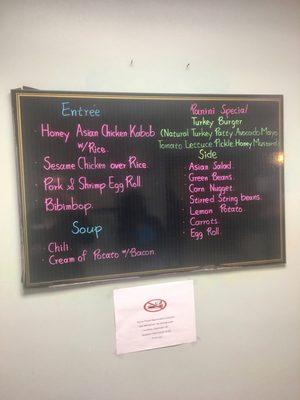 Entrée
Honey Asian Chicken Kabob
w/Rice.
Sesame Chicken over Rice.
Pork & Shrimp Egg Roll.
Bibimbop.
Soup
Chili
Cream of Potato w/Bacon.
Panini Special
Turkey Burger
(Natural Turkey Patty Avocado Mayo
Tomato Lettuce Pickle Honey Mustard)
Side
Asian Salad.
Green Beans.
Corn Nugget.
Stirred String beans.
Lemon Potato.
Carrots.
Egg Roll.